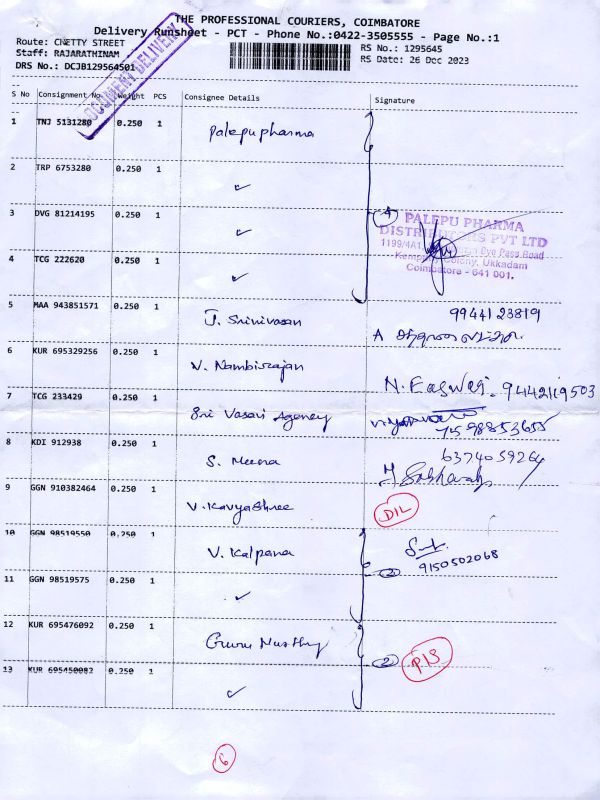 THE PROFESSIONAL COURIERS, COIMBATORE
Delivery Runsheet - PCT - Phone No.:0422-3505555 - Page No.:1
Route: CHETTY STREET
Staff: RAJARATHINAM
DRS No.: DCJB129564501
RS No.: 1295645
RS Date: 26 Dec 2023
DOCUMENT DELIVERY
S No Consignment No. Weight PCS Consignee Details Signature
1 TNJ 5131280 0.250 1 Palepu pharma
2 TRP 6753280 0.250 1 ✓
3 DVG 81214195 0.250 1 ✓ 4
PALEPU PHARMA
DISTRIBUTORS PVT LTD
1199/4A1 Bye Pass Road
Colony, Ukkadam
Coimbatore - 641 001.
4 TCG 222620 0.250 1 ✓
5 MAA 943851571 0.250 1 J. Srinivasan 9944123819
6 KUR 695329256 0.250 1 N. Nambirajan N. Easwari. 9442119503
7 TCG 233429 0.250 1 Sri Vasavi Agency 7598853655
8 KDI 912938 0.250 1 S. Meena 6374059264
9 GGN 910382464 0.250 1 V. Kavyashree D/L
10 GGN 98519550 0.250 1 V. Kalpana 9150502068
11 GGN 98519575 0.250 1 ✓ 2
12 KUR 695476092 0.250 1 Guru Murthy 2 P/S
13 KUR 695450082 0.250 1 ✓
6